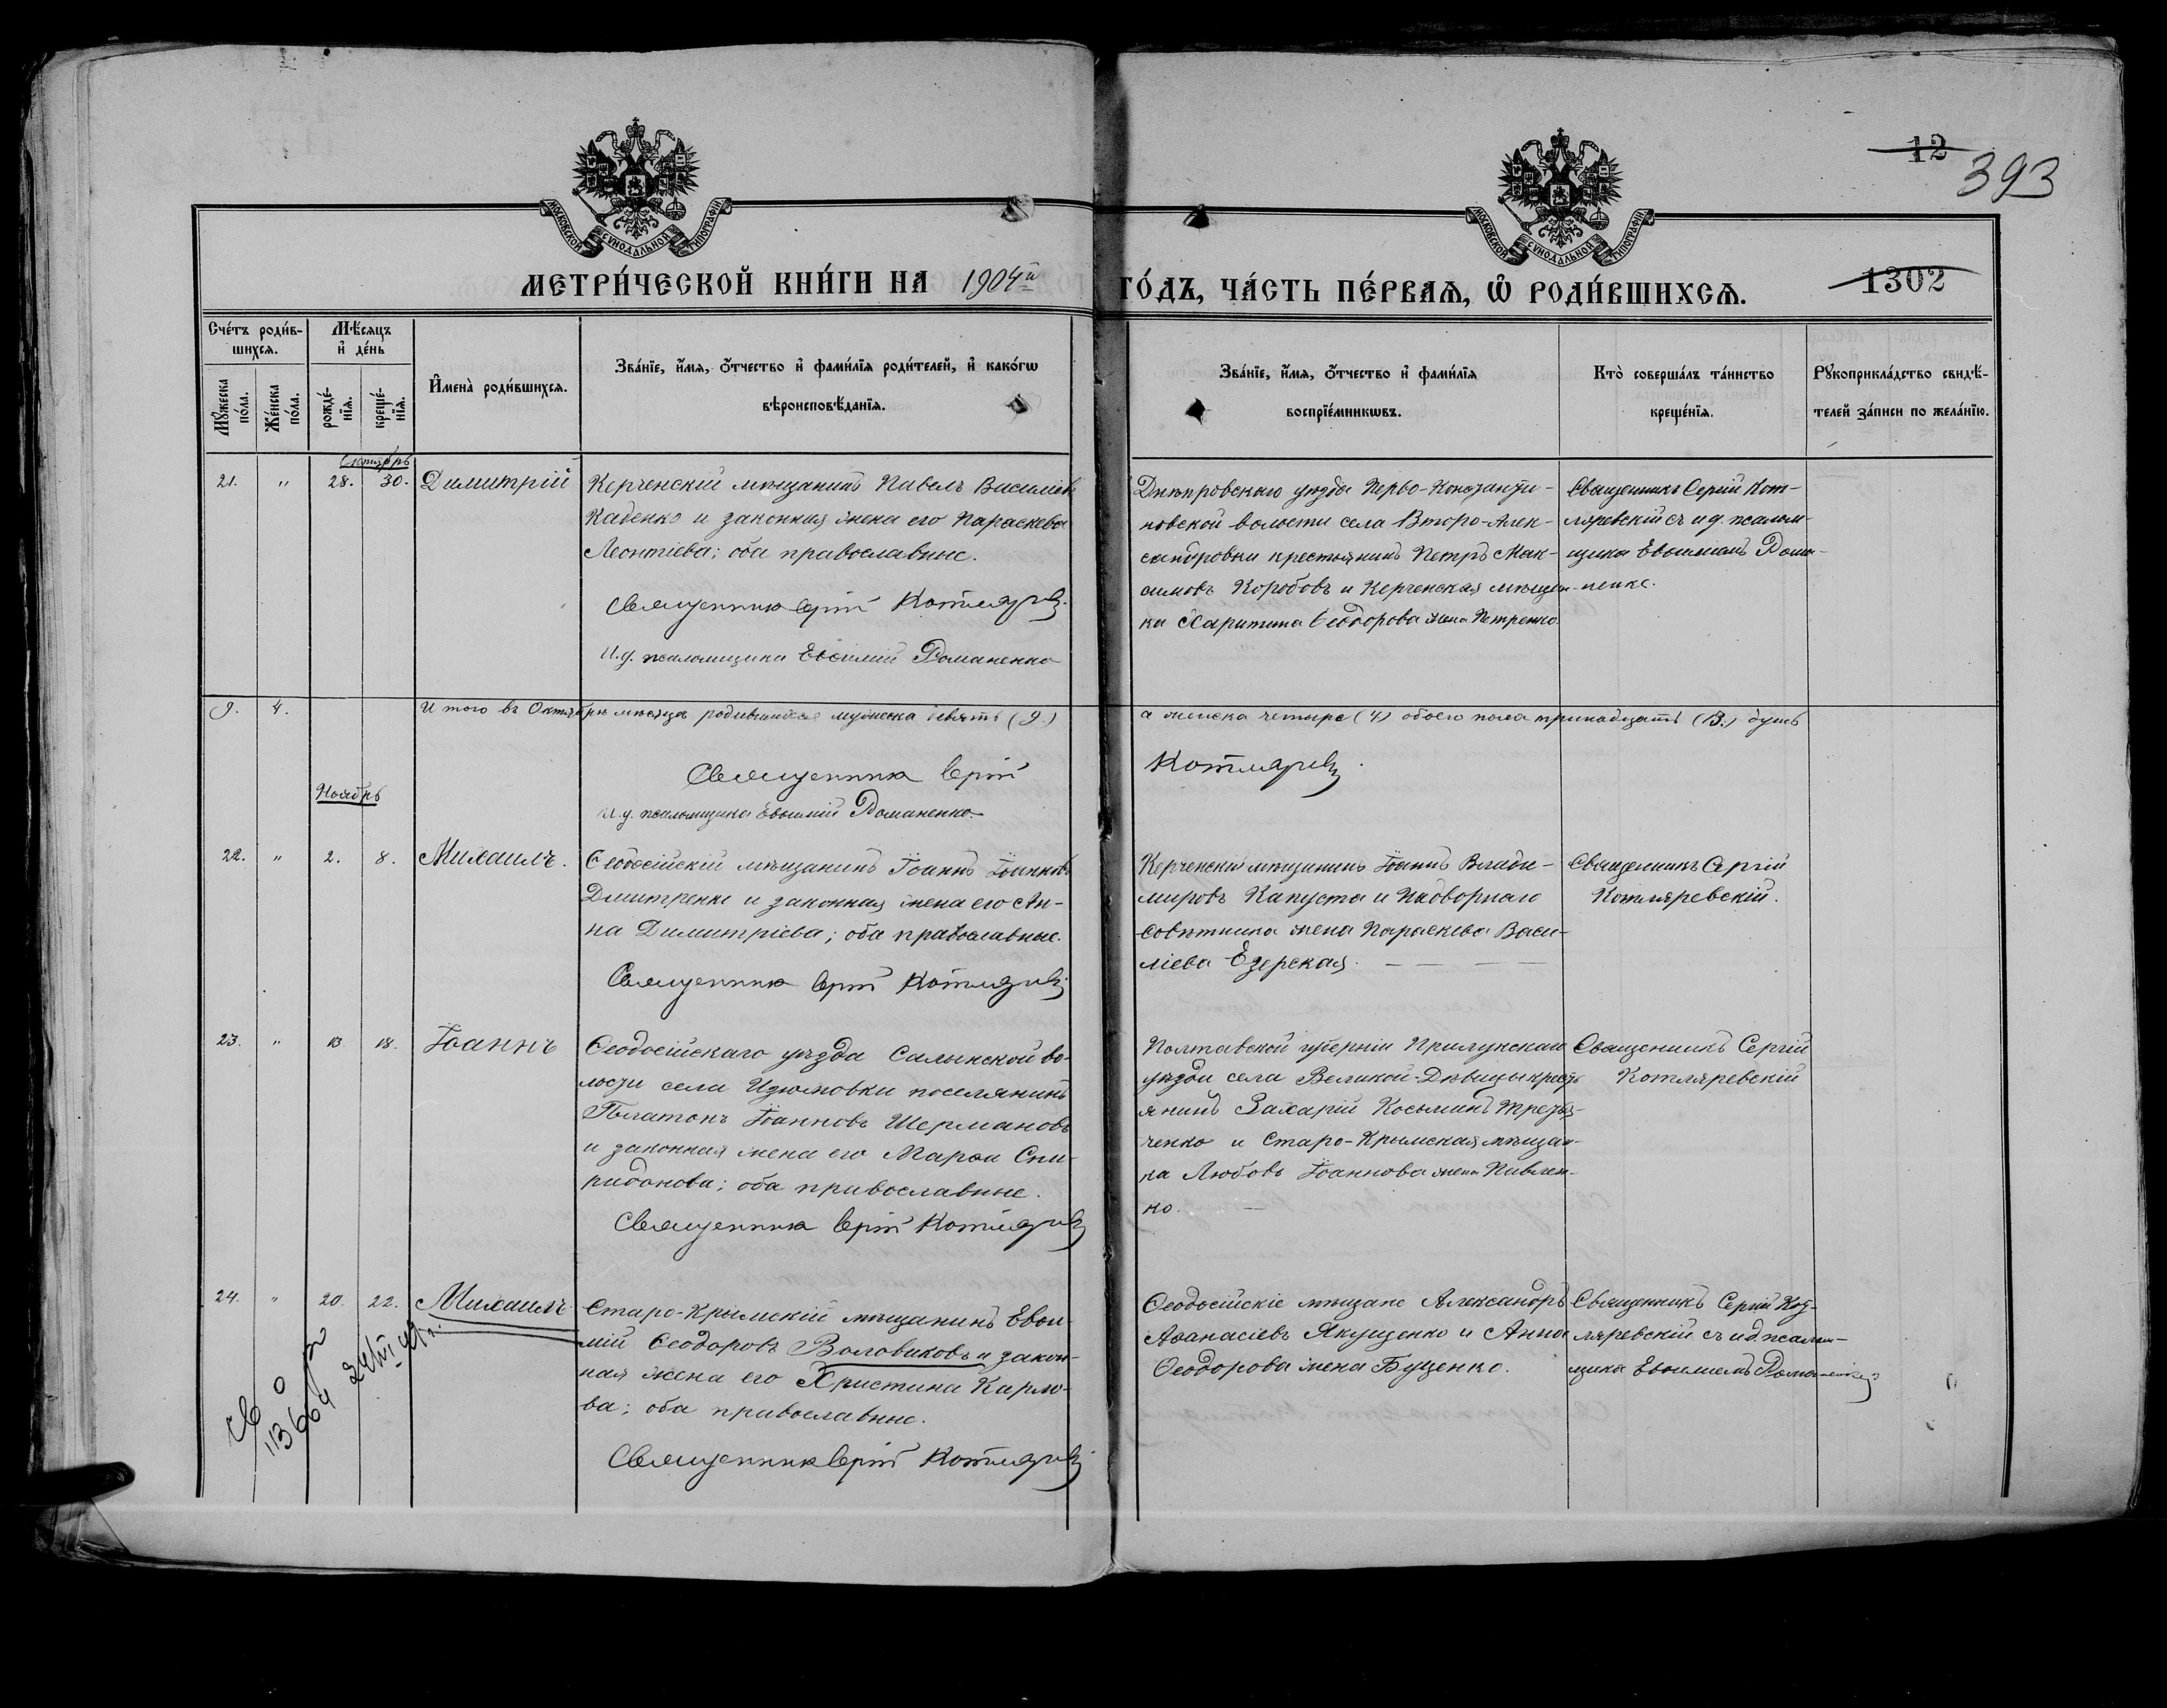 12
393
МОСКОВСКОЙ СѴНОДАЛЬНОЙ ТИПОГРАФІИ
МОСКОВСКОЙ СѴНОДАЛЬНОЙ ТИПОГРАФІИ
МЕТРИ́ЧЕСКОЙ КНИ́ГИ НА 1904й ГО́ДЪ, ЧА́СТЬ ПЕ́РВАѦ, Ѡ҆ РОДИ́ВШИХСѦ.
1302
Сче́тъ роди́в-
шихсѧ.
Мꙋ́жеска по́ла.
Же́нска по́ла.
Мѣ́сѧцъ
и҆ де́нь
рожде́-
нїѧ.
креще́-
нїѧ.
И҆мена̀ роди́вшихсѧ.
Зва́нїе, и҆́мѧ, ѻ҆́тчество и҆ фами́лїѧ роди́телей, и҆ како́гѡ
вѣроисповѣ́данїѧ.
Зва́нїе, и҆́мѧ, ѻ҆́тчество и҆ фами́лїѧ
воспрїе́мникѡвъ.
Кто̀ соверша́лъ та́инство
креще́нїѧ.
Рꙋкоприкла́дство свидѣ́-
телей за́писи по жела́нїю.
Октябрь
21. " 28. 30. Димитрій
Керченскій мѣщанинъ Павелъ Василіев
Каденко и законная жена его Параскева
Леонтіева; оба православные.
Священникъ Сергій Котляревскій
И.д. псаломщика Евѳимій Романенко
Днѣпровскаго уѣзда Перво-Константи-
новской волости села Второ-Алек-
сандровки крестьянинъ Петръ Мак-
симовъ Коробовъ и Керченская мѣщан-
ка Харитина Ѳеодорова жена Петренко.
Священникъ Сергій Кот-
ляревскій съ и д. псалом-
щика Евѳиміемъ Рома-
ненко.
9. 4. И того въ Октябрѣ мѣсяцѣ родившихся мужеска девять (9.) а женска четыре (4) обоего пола тринадцать (13.) душъ
Священникъ Сергій Котляревскій
И.д. псаломщика Евѳимій Романенко
Ноябрь
22. " 2. 8. Михаилъ.
Ѳеодосійскій мѣщанинъ Іоаннъ Іоанновъ
Дмитренко и законная жена его Ан-
на Димитріева; оба православные.
Священникъ Сергій Котляревскій
Керченскій мѣщанинъ Іоаннъ Влади-
мировъ Капуста и Надворнаго
совѣтника жена Параскева Васи-
ліева Езерская.
Священникъ Сергій
Котляревскій.
23. " 13. 18. Іоаннъ
Ѳеодосійскаго уѣзда Салынской во-
лости села Изюмовки поселянинъ
Платонъ Іоанновъ Шермановъ
и законная жена его Марѳа Спи-
ридонова; оба православные.
Священникъ Сергій Котляревскій
Полтавской губерніи Прилукскаго
уѣзда села Великой-Дѣвицы кресть
янинъ Захарій Косьминъ Третья-
ченко и Старо-Крымская мѣщан-
ка Любовь Іоаннова жена Павлен-
ко.
Священникъ Сергій
Котляревскій
24. " 20. 22. Михаилъ
Старо-Крымскій мѣщанинъ Евѳи-
мій Ѳеодоровъ Воловиковъ и закон-
ная жена его Христина Карпо-
ва; оба православные.
Священникъ Сергій Котляревскій
Ѳеодосійскіе мѣщане Александръ
Аѳанасіевъ Якущенко и Анна
Ѳеодорова жена Буценко.
Священникъ Сергій Кот-
ляревскій съ и д псалом-
щика Евѳиміемъ Романенко